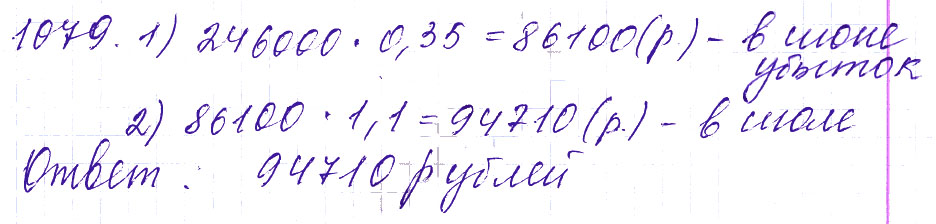 1079. 1) 246000 · 0,35 = 86100 (р.) - в июне
убыток
2) 86100 · 1,1 = 94710 (р.) - в июле
Ответ: 94710 рублей